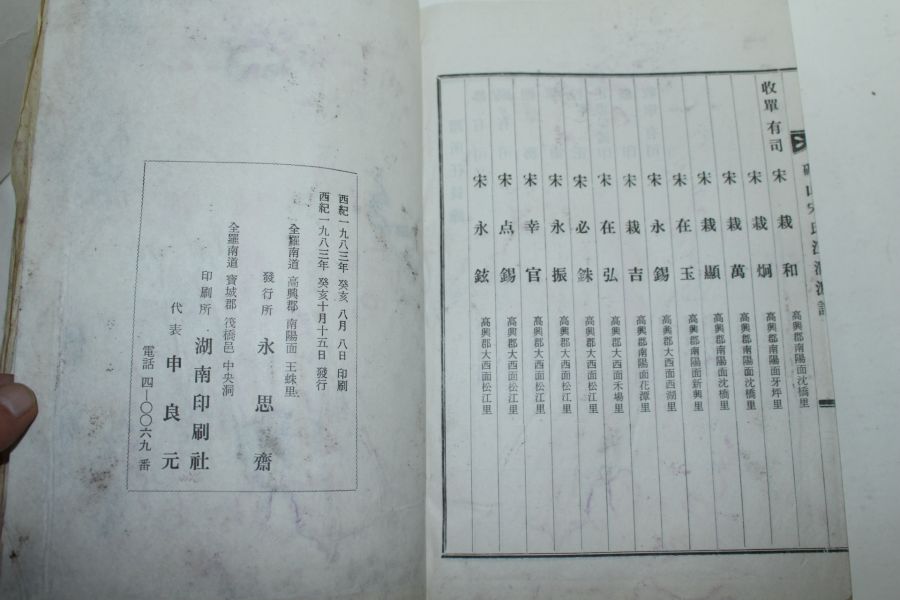 收單 有司
宋 栽 和 高興郡南陽面沈橋里
宋 栽 炯 高興郡南陽面牙坪里
宋 栽 萬 高興郡南陽面沈橋里
宋 栽 顯 高興郡南陽面沈橋里
宋 在 玉 高興郡南陽面新興里
宋 永 錫 高興郡大西面西湖里
宋 栽 吉 高興郡南陽面花潭里
宋 在 弘 高興郡大西面禾場里
宋 必 銖 高興郡大西面松江里
宋 永 振 高興郡大西面松江里
宋 幸 官 高興郡大西面松江里
宋 点 錫 高興郡大西面松江里
宋 永 鉉 高興郡大西面松江里
西紀一九八三年 癸亥 八月 八日 印刷
西紀一九八三年 癸亥十月十五日 發行
全羅南道 高興郡 南陽面 王蛛里
發行所 永思齋
全羅南道 寶城郡 筏橋邑 中央洞
印刷所 湖南印刷社
代表 申良元
電話 四─〇〇六九 番